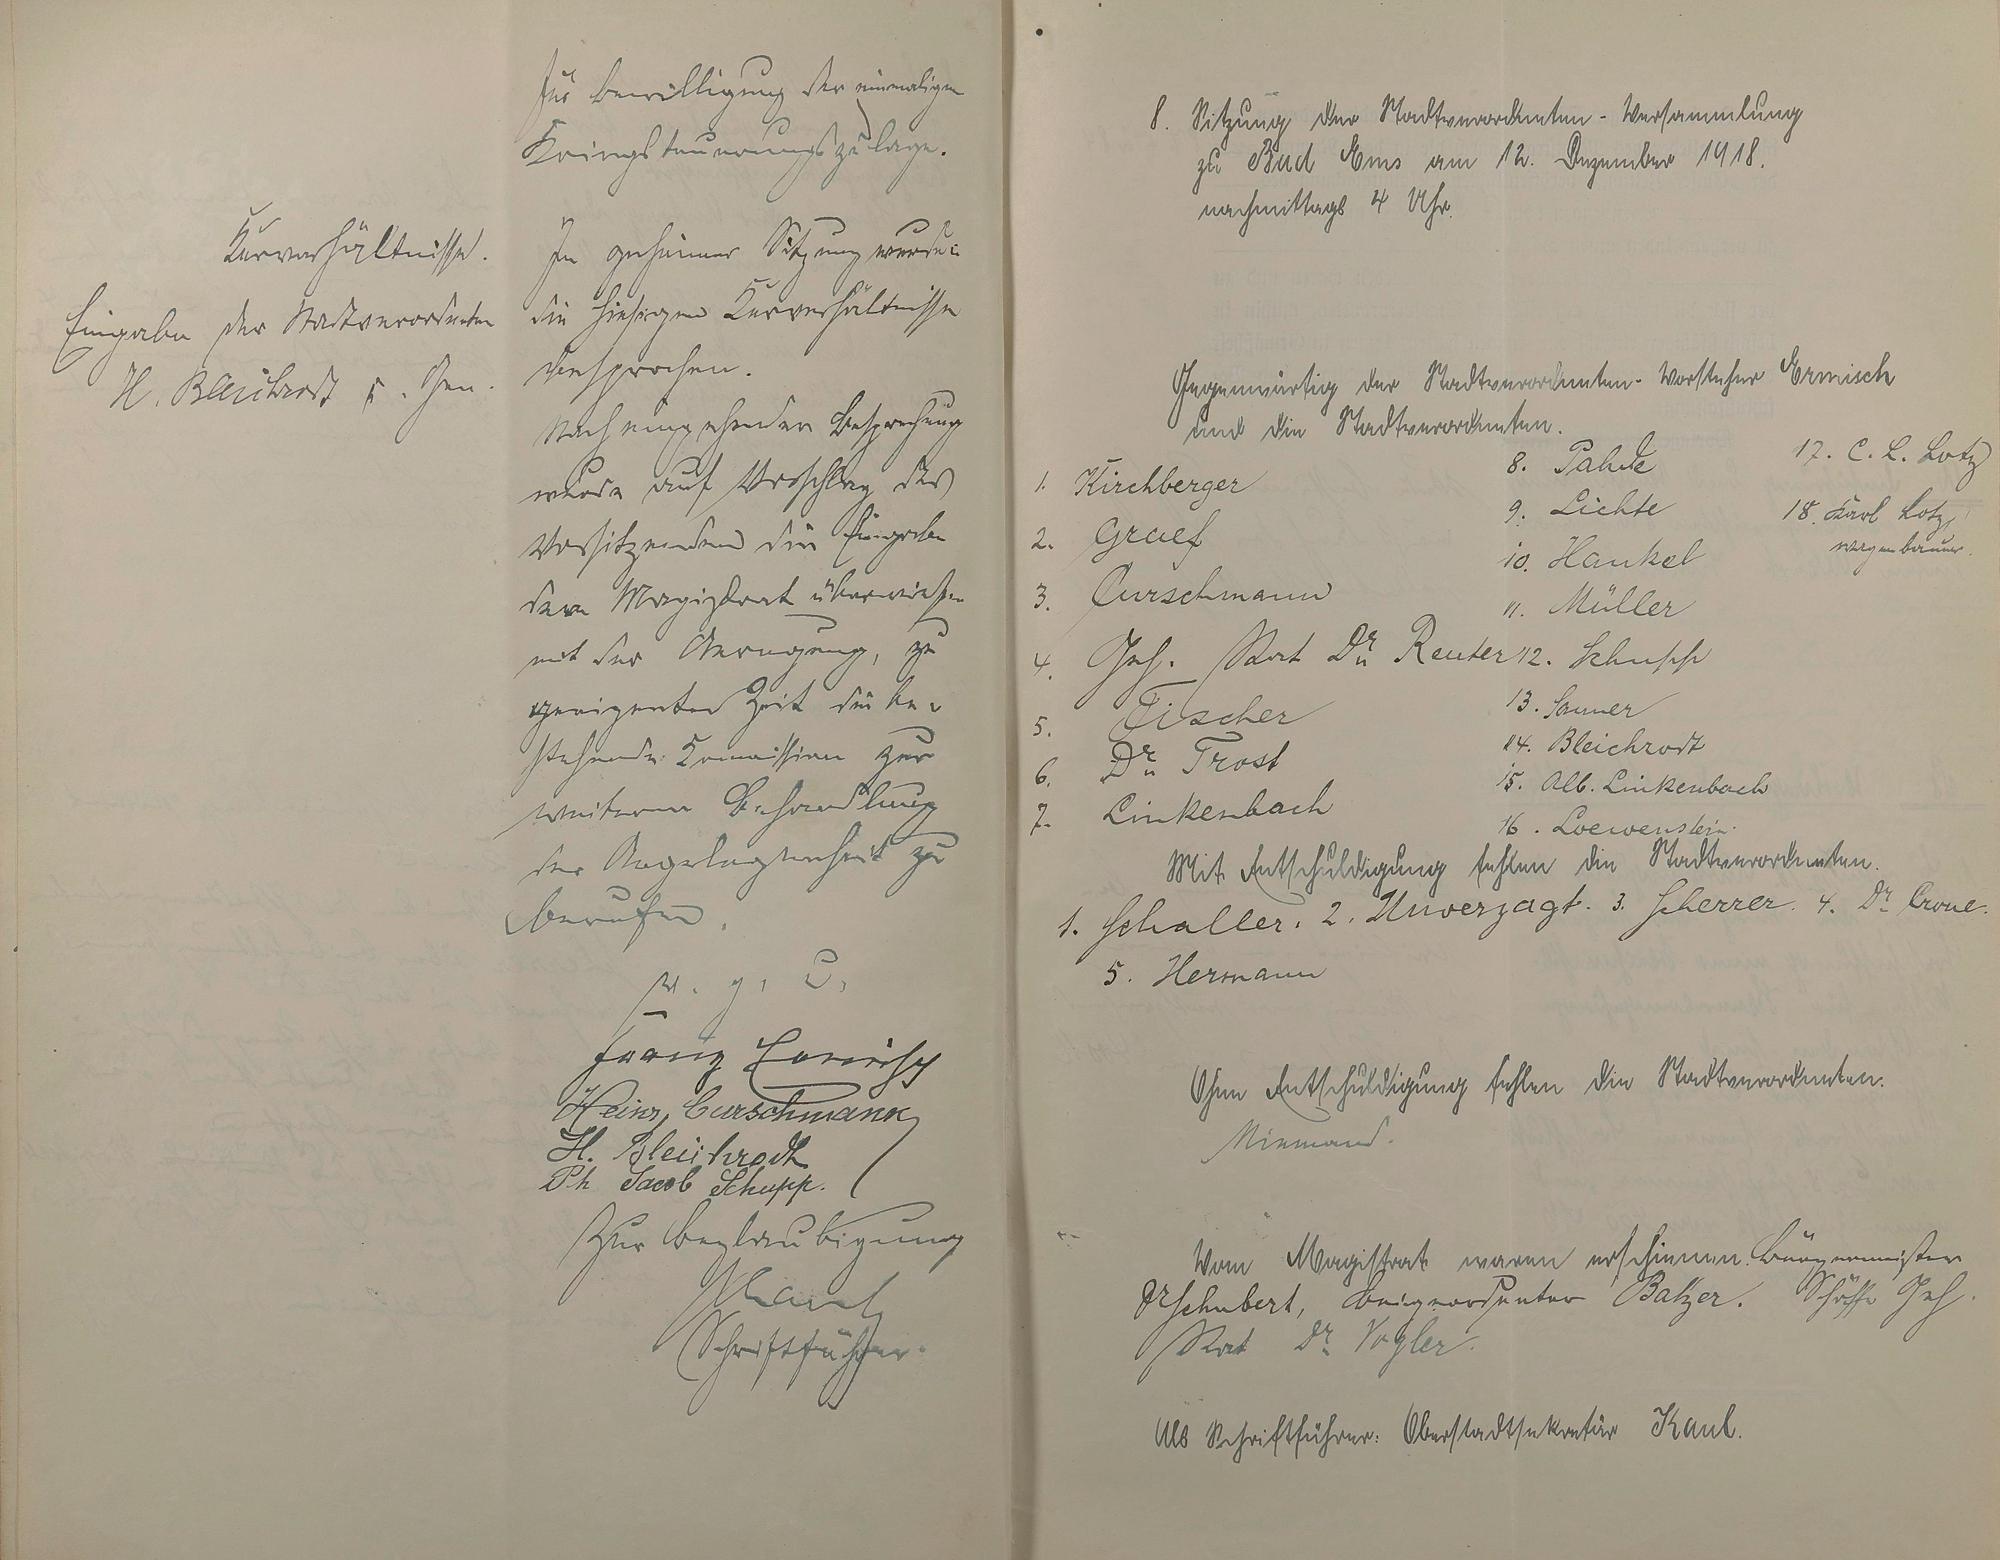 für Bewilligung der einmaligen
Kriegsteuerungszulage.
Kurverhältnisse.
Eingabe der Stadtverordneten
H. Bleichrodt u. Gen.
In geheimer Sitzung wurden
die hiesigen Kurverhältnisse
besprochen.
Nach eingehender Besprechung
wurde auf Vorschlag des
Vorsitzenden die Eingabe
dem Magistrat überwiesen
mit der Anregung, zu
geeigneter Zeit die be-
stehende Kommission zur
weiteren Behandlung
der Angelegenheit zu
berufen.
v. g. u.
Franz Ermisch
Heinr. Curschmann
H. Bleichrodt
Ph. Jacob Schupp.
Zur Beglaubigung
Kaul
Schriftführer.
8. Sitzung der Stadtverordneten-Versammlung
zu Bad Ems am 12. Dezember 1918.
nachmittags 4 Uhr.
Gegenwärtig der Stadtverordneten-Vorsteher Ermisch
und die Stadtverordneten.
1. Kirchberger
2. Graef
3. Curschmann
4. Geh. Rat Dr. Reuter
5. Fischer
6. Dr. Trost
7. Linkenbach
8. Pahde
9. Lichte
10. Hankel
11. Müller
12. Schupp
13. Sauer
14. Bleichrodt
15. Alb. Linkenbach
16. Loewenstein.
17. C. L. Lotz
18. Karl Lotz,
Wagenbauer.
Mit Entschuldigung fehlen die Stadtverordneten.
1. Schaller. 2. Unverzagt. 3. Scherrer. 4. Dr. Crone.
5. Hermann
Ohne Entschuldigung fehlen die Stadtverordneten.
Niemand.
Vom Magistrat waren erschienen: Bürgermeister
Dr Schubert, Beigeordneter Balzer. Schöffe Geh.
Rat Dr. Vogler.
Als Schriftführer: Oberstadtsekretär Kaul.